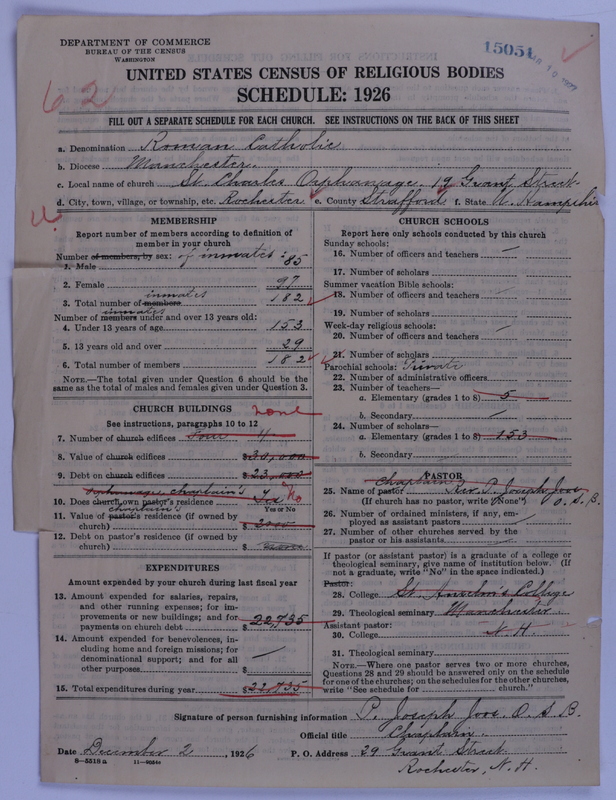 DEPARTMENT OF COMMERCE
BUREAU OF THE CENSUS
WASHINGTON
15051
62
UNITED STATES CENSUS OF RELIGIOUS BODIES
SCHEDULE: 1926
FILL OUT A SEPARATE SCHEDULE FOR EACH CHURCH. SEE INSTRUCTIONS ON THE BACK OF THIS SHEET
a. Denomination Roman Catholic
b. Diocese Manchester.
c. Local name of church St. Charles Orphanage, 19 Grant Street
d. City, town, village, or township, etc. Rochester e. County Strafford f. State N. Hampshire
MEMBERSHIP
Report number of members according to definition of member in your church
Number of members, by sex: of inmates:
1. Male 85
2. Female 97
inmates
3. Total number of members 182
inmates
Number of members under and over 13 years old:
4. Under 13 years of age 153
5. 13 years old and over 29
6. Total number of members 182
NOTE.—The total given under Question 6 should be the same as the total of males and females given under Question 3.
CHURCH BUILDINGS
none
See instructions, paragraphs 10 to 12
7. Number of church edifices Four 4
8. Value of church edifices $30,000
9. Debt on church edifices $23,000
Orphanage, chaplain's
10. Does church own pastor's residence? Yes No
Yes or No
chaplain's
11. Value of pastor's residence (if owned by church) $2000
12. Debt on pastor's residence (if owned by church) $
EXPENDITURES
Amount expended by your church during last fiscal year
13. Amount expended for salaries, repairs, and other running expenses; for improvements or new buildings; and for payments on church debt $22,735
14. Amount expended for benevolences, including home and foreign missions; for denominational support; and for all other purposes $
15. Total expenditures during year $22,735
CHURCH SCHOOLS
Report here only schools conducted by this church
Sunday schools:
16. Number of officers and teachers
17. Number of scholars
Summer vacation Bible schools:
18. Number of officers and teachers
19. Number of scholars
Week-day religious schools:
20. Number of officers and teachers
21. Number of scholars
Parochial schools: Private
22. Number of administrative officers
23. Number of teachers—
a. Elementary (grades 1 to 8) 5
b. Secondary
24. Number of scholars—
a. Elementary (grades 1 to 8) 153
b. Secondary
PASTOR
Chaplain
25. Name of pastor Rev. P. Joseph Joos O.S.B.
(If church has no pastor, write "None")
26. Number of ordained ministers, if any, employed as assistant pastors
27. Number of other churches served by the pastor or his assistants
If pastor (or assistant pastor) is a graduate of a college or theological seminary, give name of institution below. (If not a graduate, write "No" in the space indicated.)
Pastor:
28. College St. Anselm's College
29. Theological seminary Manchester
Assistant pastor:
30. College N. H.
31. Theological seminary
NOTE.—Where one pastor serves two or more churches, Questions 28 and 29 should be answered only on the schedule for one of the churches; on the schedules for the other churches, write "See schedule for church."
Signature of person furnishing information P. Joseph Joos, O.S.B.
Official title Chaplain
Date December 2, 1926 P. O. Address 29 Grant Street
8—5518 a 11—9054c
Rochester, N. H.